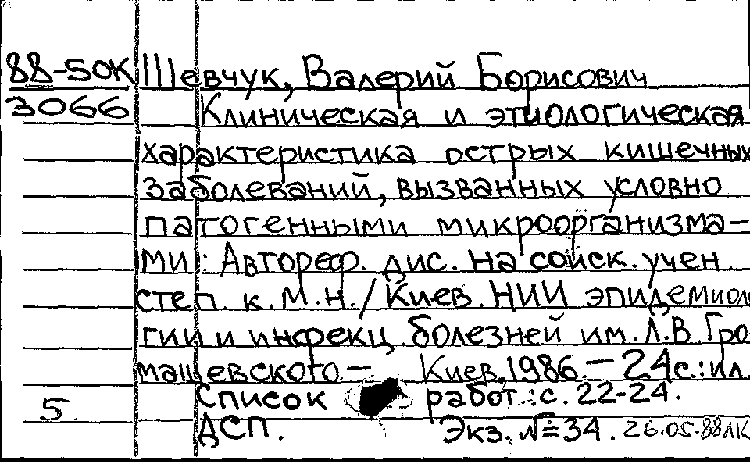 88-50К Шевчук, Валерий Борисович
3066 Клиническая и этиологическая
характеристика острых кишечных
заболеваний, вызванных условно
патогенными микроорганизма-
ми: Автореф. дис. на соиск. учен
степ. к.м.н./Киев. НИИ эпидемиоло
гии и инфекц. болезней им. Л.В. Гро
машевского— Киев, 1986.—24с.:ил.
Список работ.:с. 22-24.
5 ДСП. Экз. №=34. 26.05.88